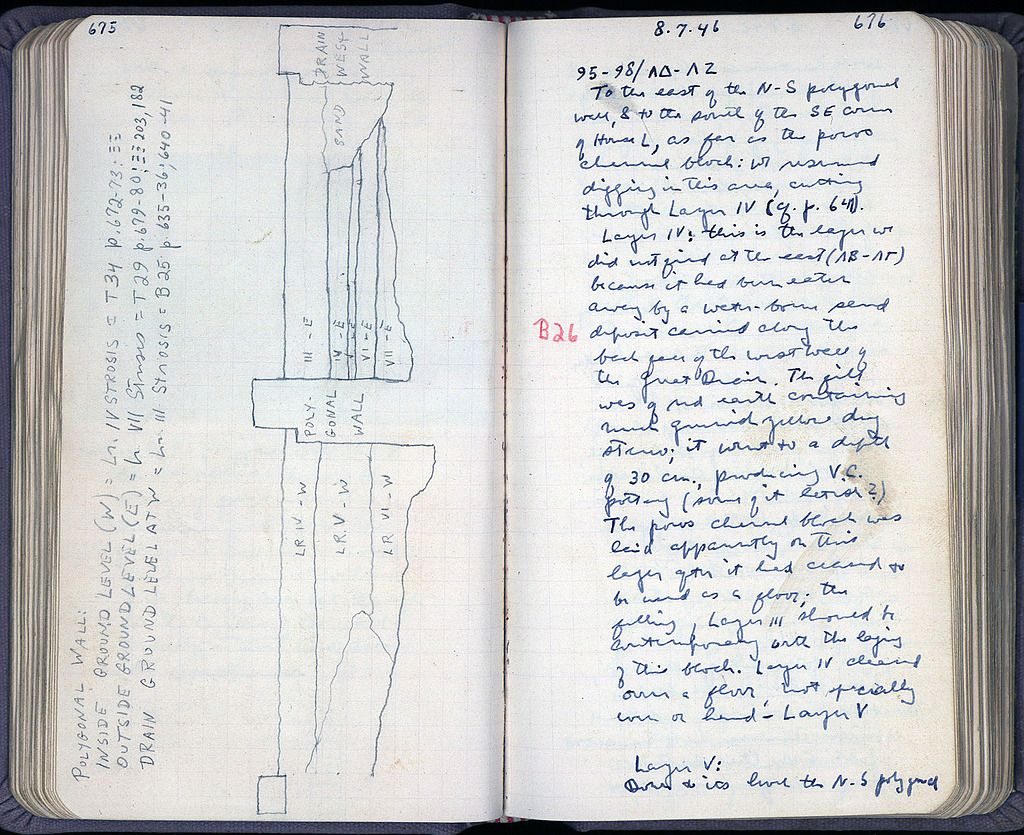 675
POLYGONAL WALL:
INSIDE GROUND LEVEL (W) = Lr. IV STROSIS = T34 p. 672-73;
OUTSIDE GROUND LEVEL (E) = Lr VII Strosis = T29 p. 679-80; 203, 182
DRAIN GROUND LEVEL AT W = Lr. III STROSIS = B25 p 635-36; 640-41
DRAIN
WEST
WALL
SAND
III - E
IV - E
V - E
VI - E
VII - E
POLY-
GONAL
WALL
LR IV - W
LR. V - W
LR VI - W
8.7.46
676
95-98/ΛΔ-ΛΖ
To the east of the N-S polygonal
wall, & to the south of the SE corner
of House L, as far as the poros
channel block: we resumed
digging in this area, cutting
through Layer IV (cf. p. 641).
Layer IV: this is the layer we
did not find at the east (ΛΒ-ΛΓ)
because it had been eaten
away by a water-borne sand
B26
deposit carried along the
back face of the west wall of
the Great Drain. The fill
was of red earth containing
much ground yellow
it went to a depth
of 30 cm., producing V.C.
pottery (some of it later?)
The poros channel block was
laid apparently on this
layer after it had ceased to
be used as a floor; the
filling, Layer III should be
contemporary with the laying
of this block. Layer IV cleared
over a floor, not specially
even or hard - Layer V
Layer V:
Down to its level the N-S polygonal